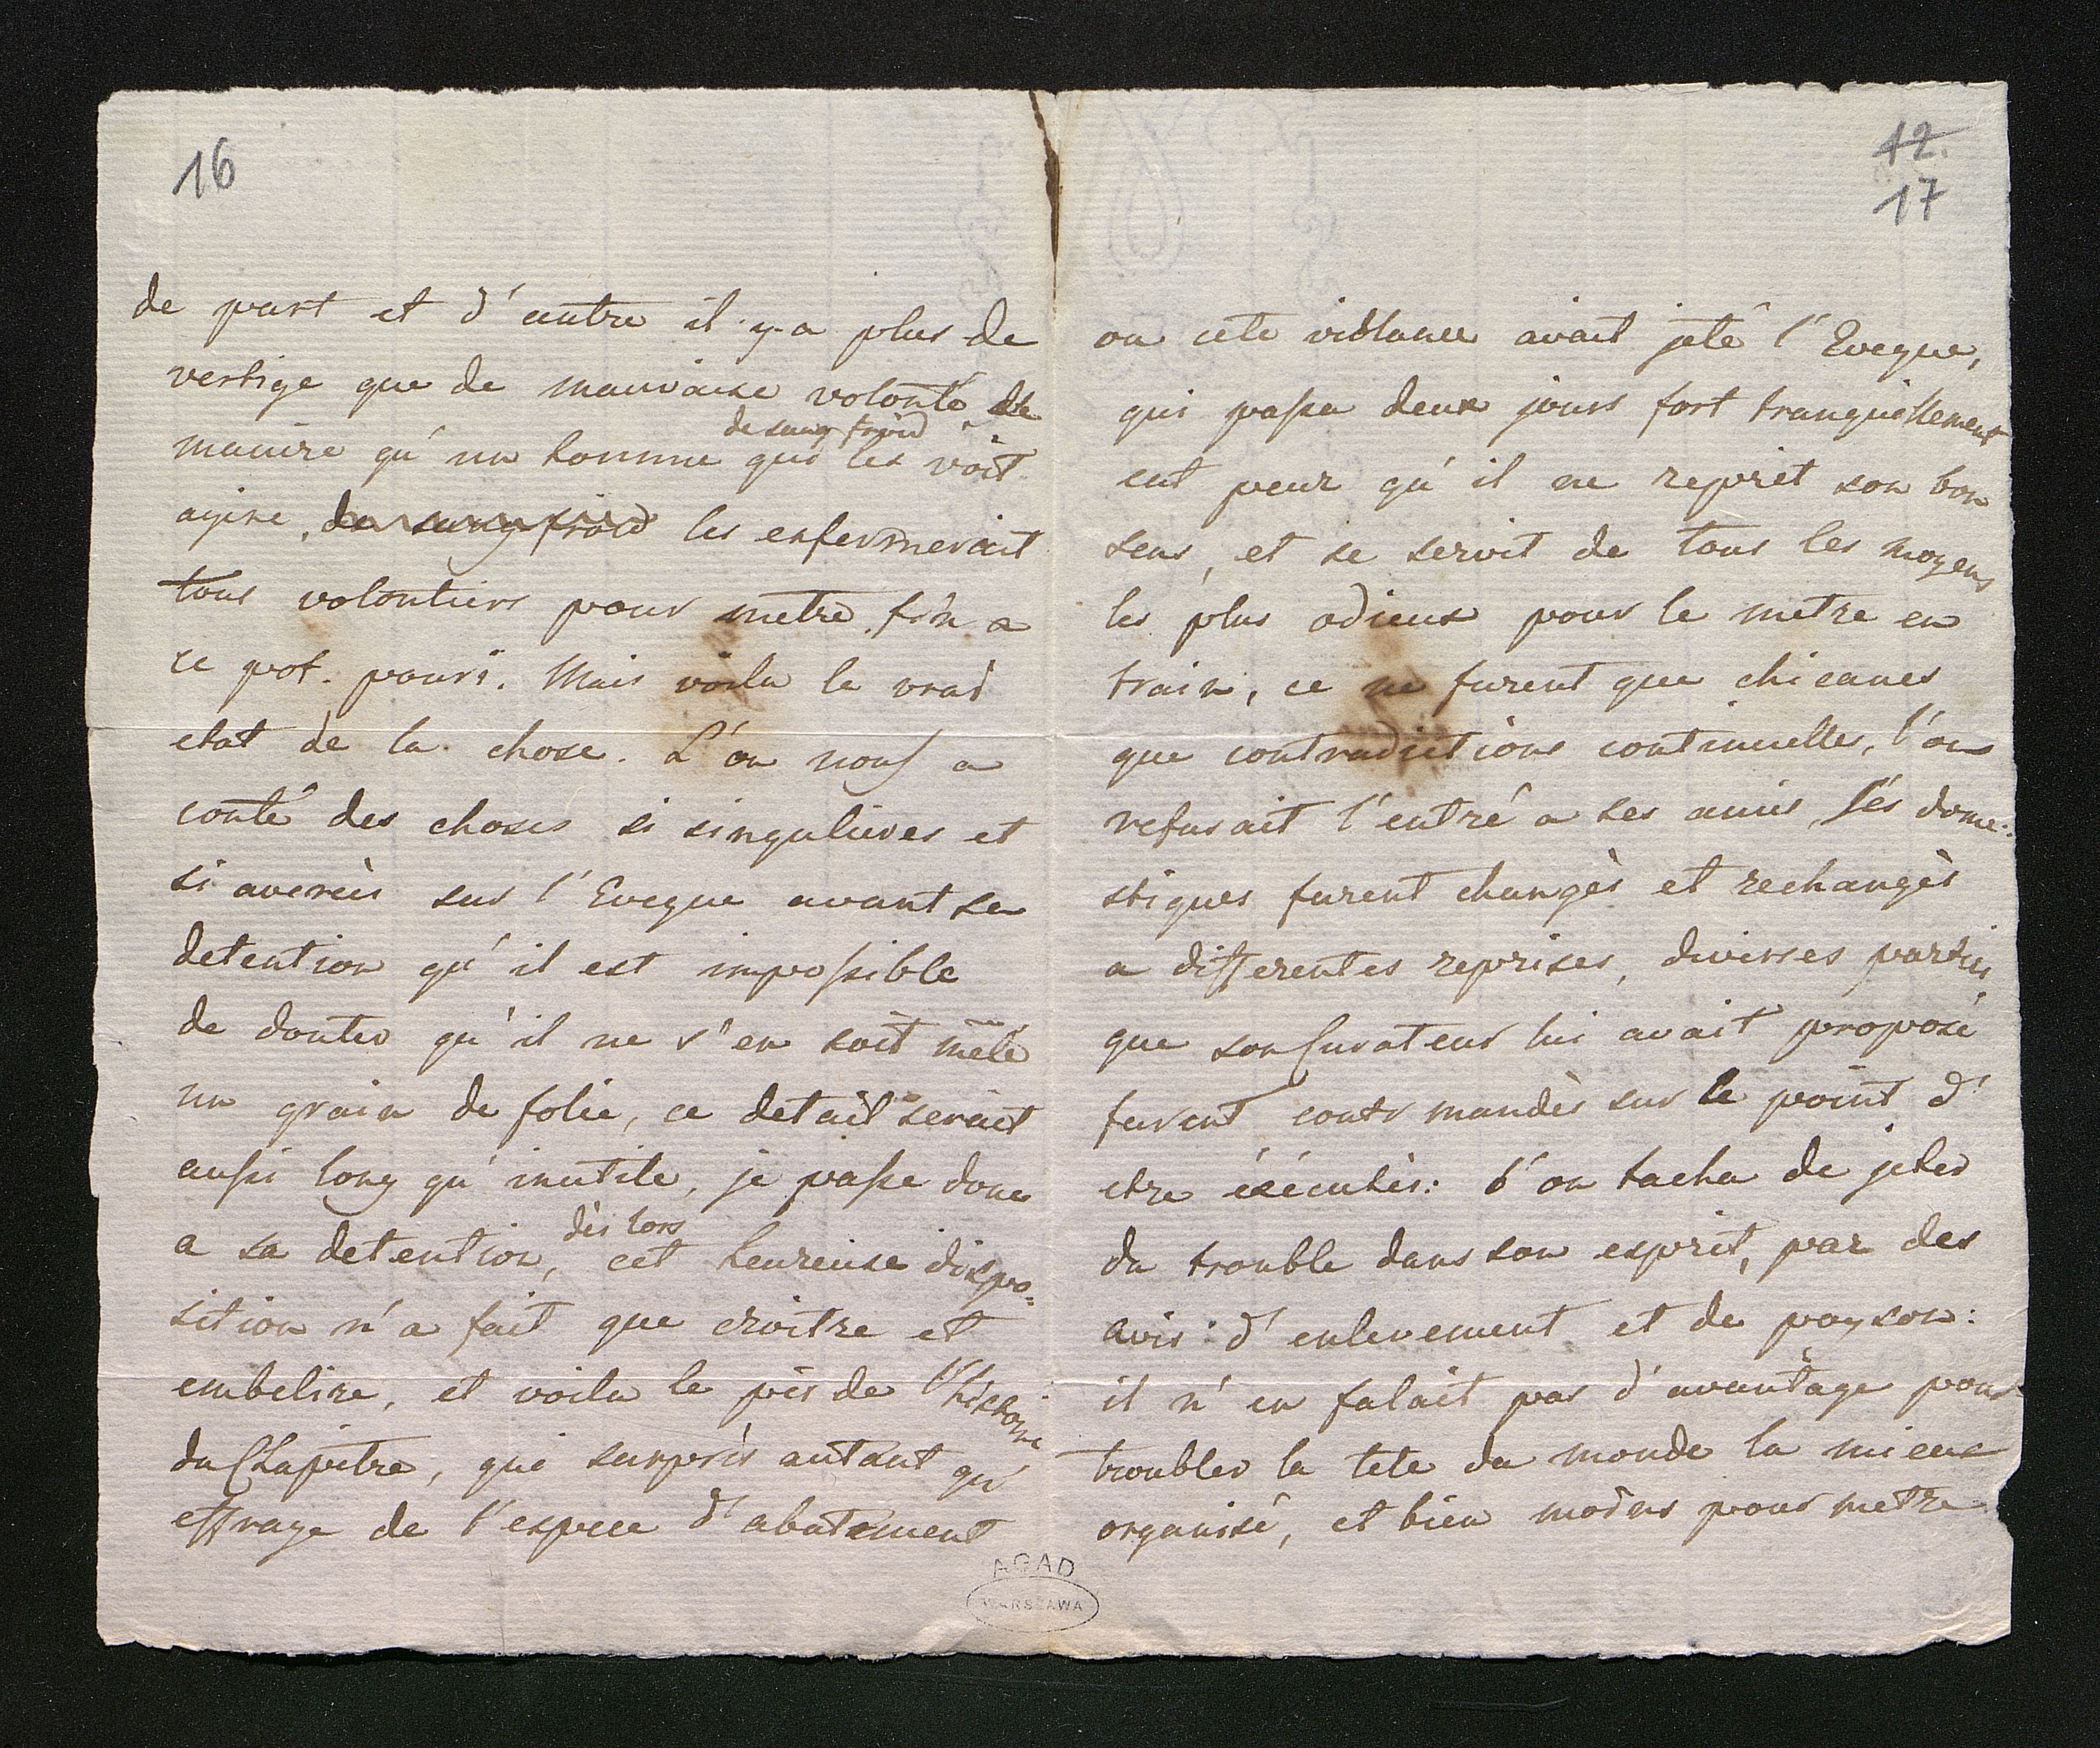 16
de part et d'autre il y a plus de
vertige que de mauvaise volonté, de
de sang froid
maniere qu'un homme qui les voit
agire, de sang froid les enfermerait
tous volontiers pour metre fin a
ce pot. pouri. Mais voila le vrai
etat de la chose. L'on nous a
conté des choses si singulieres et
si averèes sur l'Eveque avant sa
detention qu'il est impossible
de douter qu'il ne s'en soit mêlé
un grain de folie, ce detail serait
aussi long qu'inutile, je passe donc
dès lors
a sa detention, cet heureuse dispo-
sition n'a fait que croitre et
embelire, et voila le pis de l'histoire
du Chapitre, qui surpris autant qu'
effraye de l'espece d'abatement
12.
17
ou cete violance avait jeté l'Eveque,
qui passa deux jours fort tranquillement
eut peur qu'il ne reprit son bon
sens, et se servit de tous les moyens
les plus odieux pour le metre en
train, ce ne furent que chicanes
que contradictions continuelles, l'on
refusait l'entré a ses amis, ses dome-
stiques furent changès et rechangès
a differentes reprises, diverses parties
que son Curateur lui avait proposé
furent contr mandès sur le point d'
etre éxécutès: l'on tacha de jeter
du trouble dans son esprit, par des
avis d'enlevement et de poyson:
il n'en falait pas d'avantage pour
troubler la tete du monde la mieux
organisé, et bien moins pour metre
AGAD
WARSZAWA